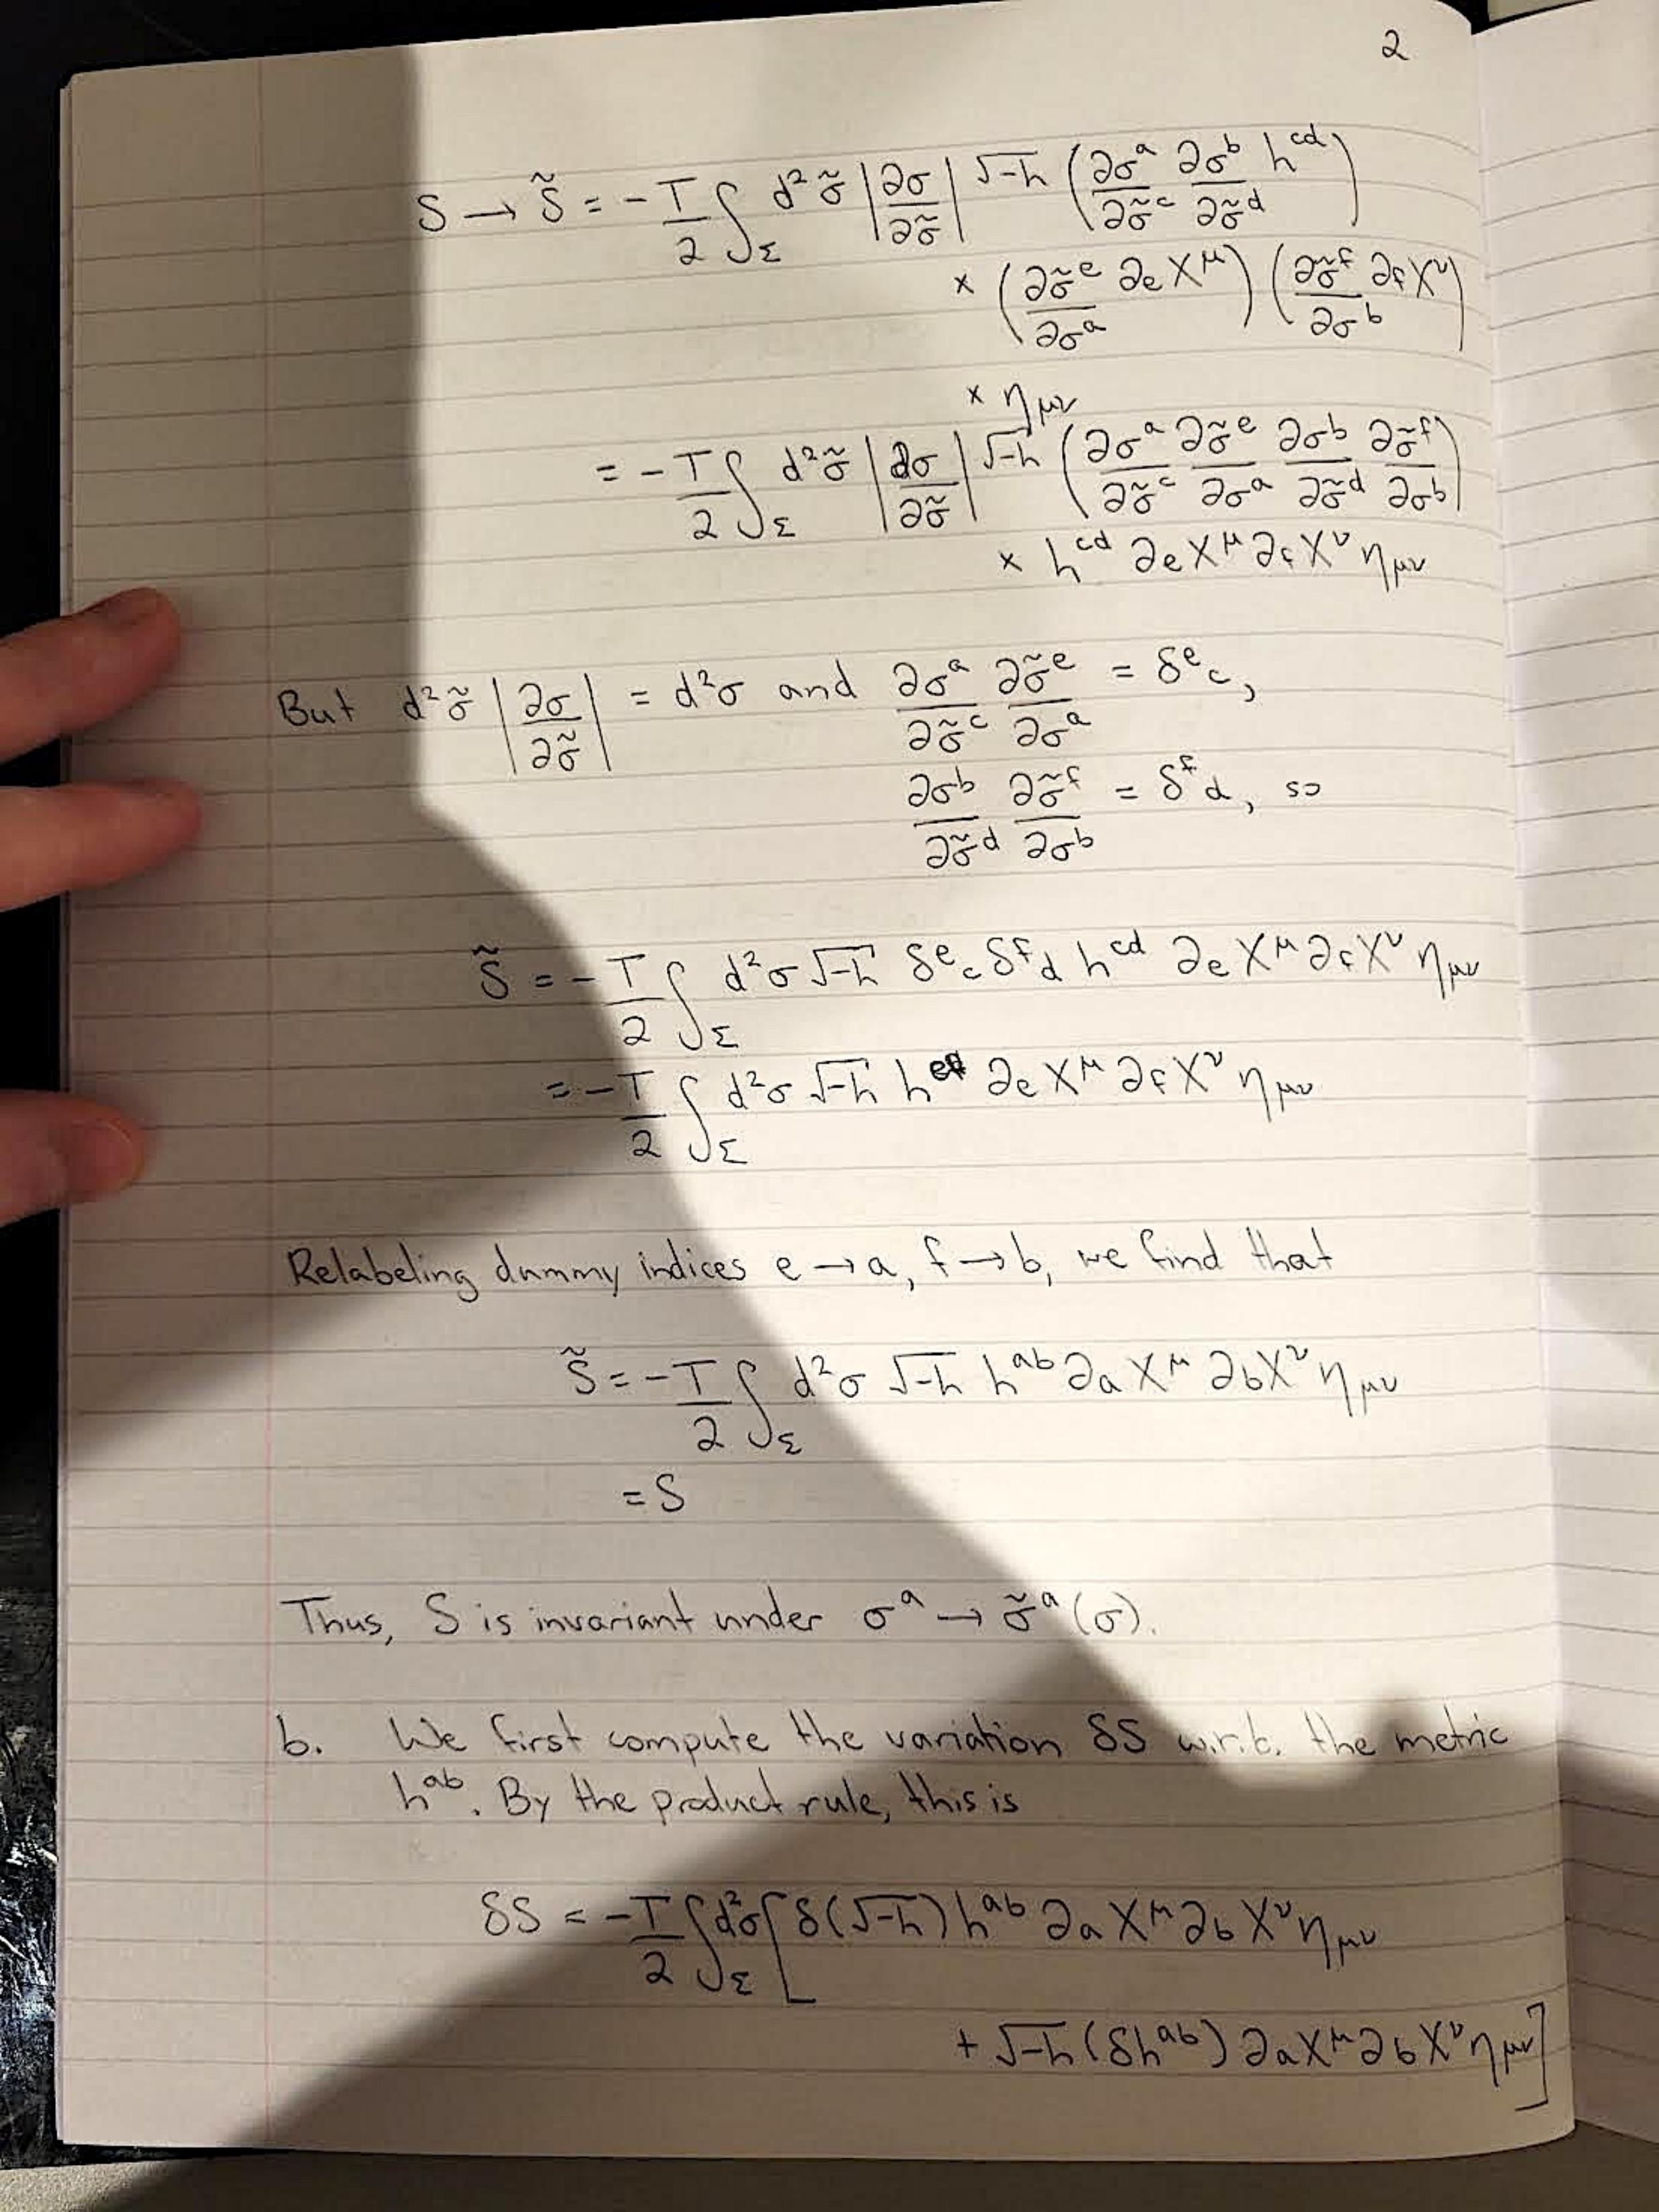 2
S → S̃ = -T/2 ∫_Σ d²σ̃ |∂σ/∂σ̃| √-h (∂σ^a/∂σ̃^c ∂σ^b/∂σ̃^d h^cd)
× (∂σ̃^e/∂σ^a ∂_e X^μ) (∂σ̃^f/∂σ^b ∂_f X^ν)
× η_μν
= -T/2 ∫_Σ d²σ̃ |∂σ/∂σ̃| √-h (∂σ^a/∂σ̃^c ∂σ̃^e/∂σ^a ∂σ^b/∂σ̃^d ∂σ̃^f/∂σ^b)
× h^cd ∂_e X^μ ∂_f X^ν η_μν
But d²σ̃ |∂σ/∂σ̃| = d²σ and ∂σ^a/∂σ̃^c ∂σ̃^e/∂σ^a = δ^e_c,
∂σ^b/∂σ̃^d ∂σ̃^f/∂σ^b = δ^f_d, so
S̃ = -T/2 ∫_Σ d²σ √-h δ^e_c δ^f_d h^cd ∂_e X^μ ∂_f X^ν η_μν
= -T/2 ∫_Σ d²σ √-h h^ef ∂_e X^μ ∂_f X^ν η_μν
Relabeling dummy indices e → a, f → b, we find that
S̃ = -T/2 ∫_Σ d²σ √-h h^ab ∂_a X^μ ∂_b X^ν η_μν
= S
Thus, S is invariant under σ^a → σ̃^a (σ).
b. We first compute the variation δS w.r.t. the metric
h^ab. By the product rule, this is
δS = -T/2 ∫_Σ d²σ [δ(√-h) h^ab ∂_a X^μ ∂_b X^ν η_μν
+ √-h (δh^ab) ∂_a X^μ ∂_b X^ν η_μν]